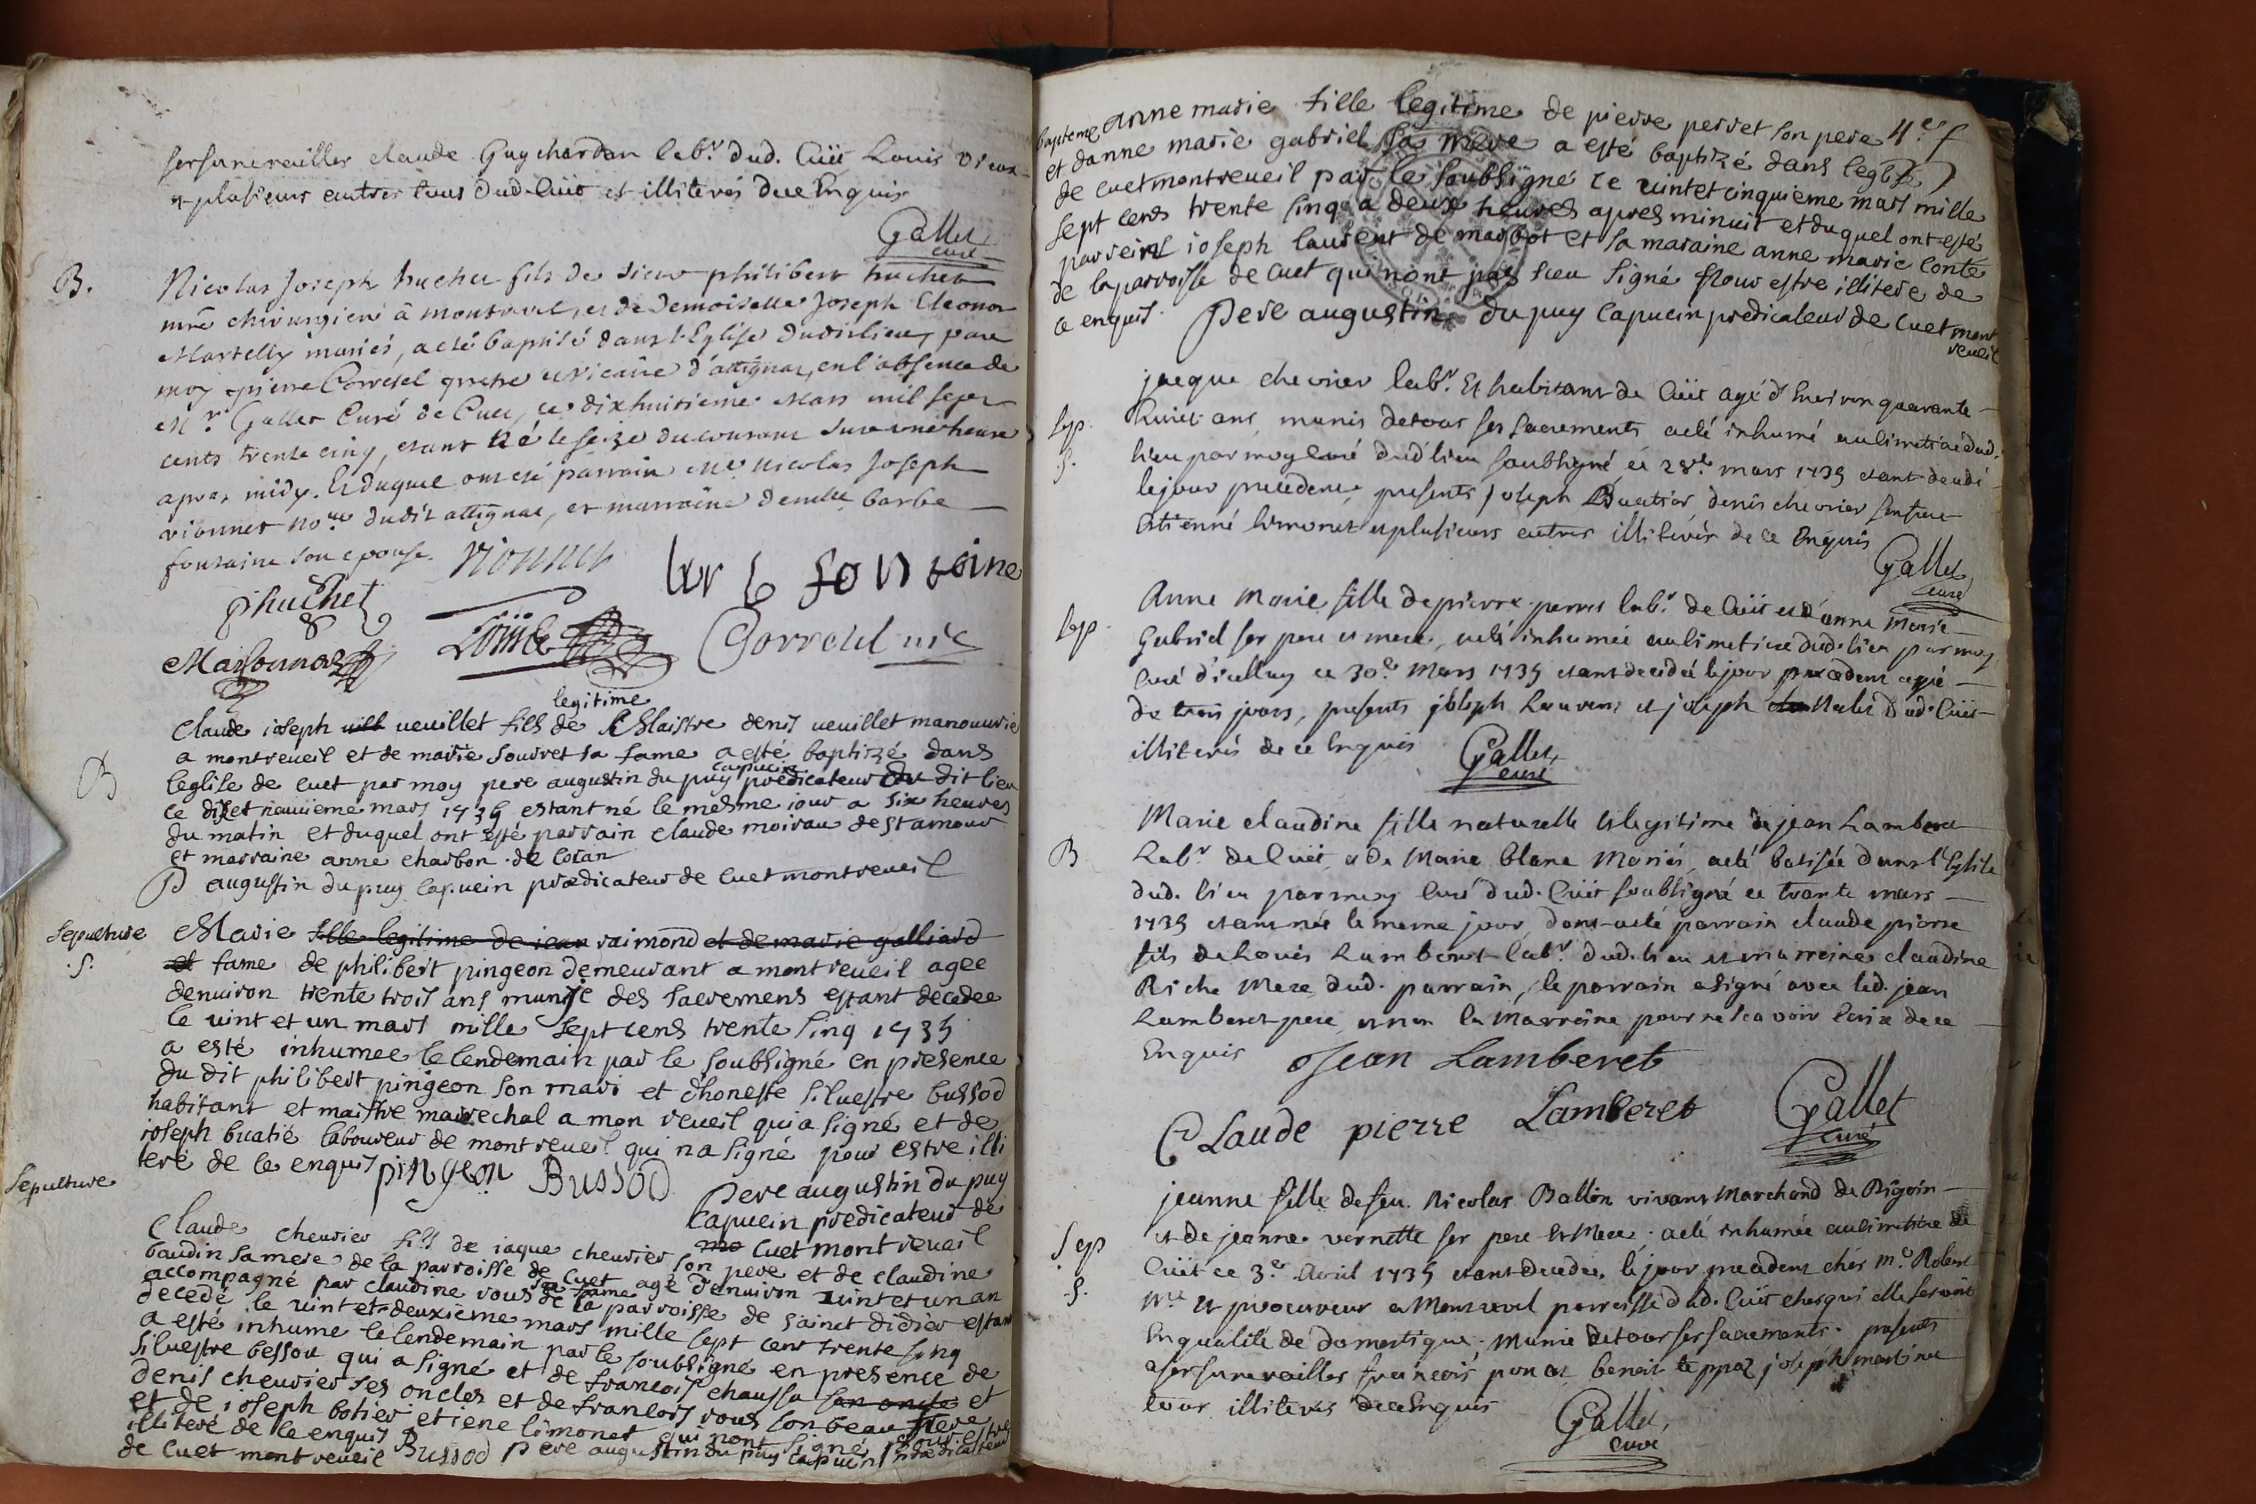 ses funerailles claude Guychardon labr. dud. Cüit Louis
& plusieurs autres tous dud. Cüit et illiterés de ce Enquis
Gallet
curé
B.
Nicolas Joseph huchet fils de sieur philibert huchet
mre chirurgien à montrevel, et de demoiselle Joseph Eleonor
Martelly mariés, a eté baptisé dans l'Eglise dudit lieu, par
moy pierre Corretel pretre et vicaire d'attignat, en l'absence de
Mr. Gallet Curé de Cuet, ce dixhuitieme Mars mil sept
cents trente cinq, etant né le seize du courant sur une heure
apres midy. Et duquel ont été parrain Me Nicolas Joseph
vionnet nore dudit attignat, et marraine demlle barbe
fontaine son epouse. vionnet
barbe fontaine
Phuchet
Corretel vic
legitime
claude ioseph ueuillet fils de Maistre denis ueuillet manouurie
a montreueil et de marie soudret sa fame a esté baptizé dans
capucin
leglise de cuet par moy pere augustin du puy predicateur du dit lieu
ce dixet neuuieme mars 1735 estant né le mesme iour a six heures
B
du matin et duquel ont esté parrain claude moirau de st amour
et marraine anne charbon de coran
P augustin du puy capucin prædicateur de cuet montreueil
sepulture
.S.
Marie fille legitime de iean raimond et de marie galliard
et fame de philibert pingeon demeurant a montreueil agee
denuiron trente trois ans munije des sacremens estant decedee
le uint et un mars mille sept cens trente sinq 1735
a esté inhumee le lendemain par le soubsigné en presence
du dit philibert pingeon son mari et dhoneste siluestre bussod
habitant et maistre marechal a mon reueil qui a signé et de
ioseph bcatié laboureur de montreueil qui na signé pour estre illi
teré de ce enquis pingeon Bussod
Pere augustin du puy
capucin predicateur de
cuet montreueil
Sepulture
Claude cheurier fils de iaque cheurier son pere et de claudine
baudin sa mere de la parroisse de cuet agé denuiron uintet un an
sa fame
accompagné par claudine rous de la parroisse de sainct didier estant
decedé le uint et deuxieme mars mille sept cent trente sinq
a esté inhume le lendemain par le soubsigné en presence de
siluestre bessou qui a signé et de francois chaussa son oncle et
denis cheurier ses oncles et de francois rous son beau frere
et de ioseph botier etiene limonet qui nont signé pour estre
illiteré de ce enquis Bussod Pere augustin du puy capucin prædicateur
de cuet montreueil
bapteme
anne marie fille legitime de pierre perret son pere 4e f
et danne marie gabriel sa mere a esté baptizé dans leglise
de cuet montreueil par le soubsigné ce uintet cinquieme mars mille
sept cens trente sinq a deux heures apres minuit et duquel ont esté
parrein ioseph laurent de marbot et sa maraine anne marie conte
de la parroisse de cuet qui nont pas sceu signé pour estre illitere de
ce enquis. Pere augustin du puy capucin predicateur de cuet mont
reueil
jacque chevrier labr. Et habitant de Cüit agé d'Environ quarante
Sep.
S.
huict ans, munis de tous ses sacrements a eté inhumé au cimetiere dud.
lieu par moy Curé dud. lieu soubsigné ce 28e mars 1735 etant decedé
le jour precedent, presents joseph denis chevrier son frere
Etienne limonet et plusieurs autres illiterés de ce Enquis
Gallet
curé
Sep.
Anne Marie fille de pierre perret labr. de Cüit et d'anne Marie
Gabriel ses pere et mere, a eté inhumée au cimetiere dud. lieu par moy
Curé d'icelluy ce 30e Mars 1735 etant decedée le jour precedent agée
de trois jours, presents joseph Laurent et joseph dud. Cüit
illiterés de ce Enquis
Gallet
curé
B
Marie claudine fille naturelle et legitime de jean Lamberet
Labr. de Cüit et de Marie blanc Mariés, a eté batisée dans l'Eglise
dud. lieu par moy Curé dud. Cüit soubsigné ce trante mars
1735 etant née le meme jour, dont a eté parrain claude pierre
fils de Louis Lamberet labr. dud. lieu et marreine claudine
Riche Mere dud. parrain, le parrain a signé avec led. jean
Lamberet pere et non la Marreine pour ne scavoir Ecrire de ce
Enquis Jean Lamberet
CLaude pierre Lamberet
Gallet
curé
Sep
S.
jeanne fille de feu Nicolas Ballon vivant Marchand de
et de jeanne vernette ses pere et Mere; a eté inhumée au cimetiere de
Cüit ce 3e Avril 1735 etant decedée le jour precedent chés Me Robert
Nre et procureur a Montrevel parroisse dud. Cüit chez qui elle servoit
En qualité de domestique; Munie de tous ses sacrements. presents
a ses funerailles francois ponat benoit joseph martinet
tous illiterés de ce Enquis
Gallet,
curé